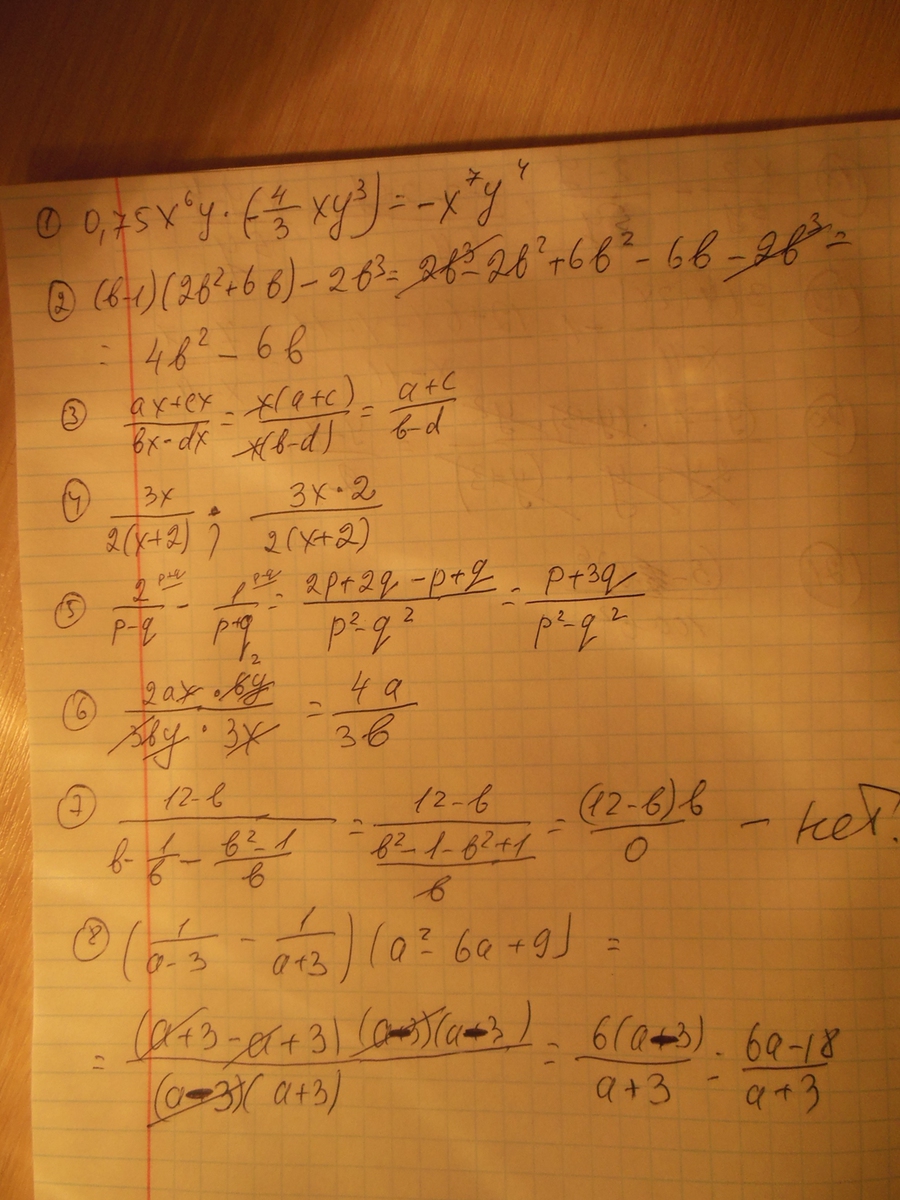 ① 0,75x⁶y · (-4/3 xy³) = -x⁷y⁴
② (в-1)(2в²+6в) - 2в³ = 2в³ - 2в² + 6в² - 6в - 2в³ =
= 4в² - 6в
③ (ax+cx)/(вx-dx) = x(a+c)/x(в-d) = (a+c)/(в-d)
④ 3x/2(x+2) ; 3x·2/2(x+2)
⑤ 2^(p+q)/(p-q) - 1^(p+q)/(p+q) = (2p+2q-p+q)/(p²-q²) = (p+3q)/(p²-q²)
⑥ (2ax · 6y²)/(3вy · 3x) = 4a/3в
⑦ (12-в)/(в - 1/в - (в²-1)/в) = (12-в)/((в²-1-в²+1)/в) = (12-в)в/0 - нет!
⑧ (1/(a-3) - 1/(a+3))(a²-6a+9) =
= (a+3-a+3)(a-3)(a-3)/(a-3)(a+3) = 6(a-3)/(a+3) = (6a-18)/(a+3)